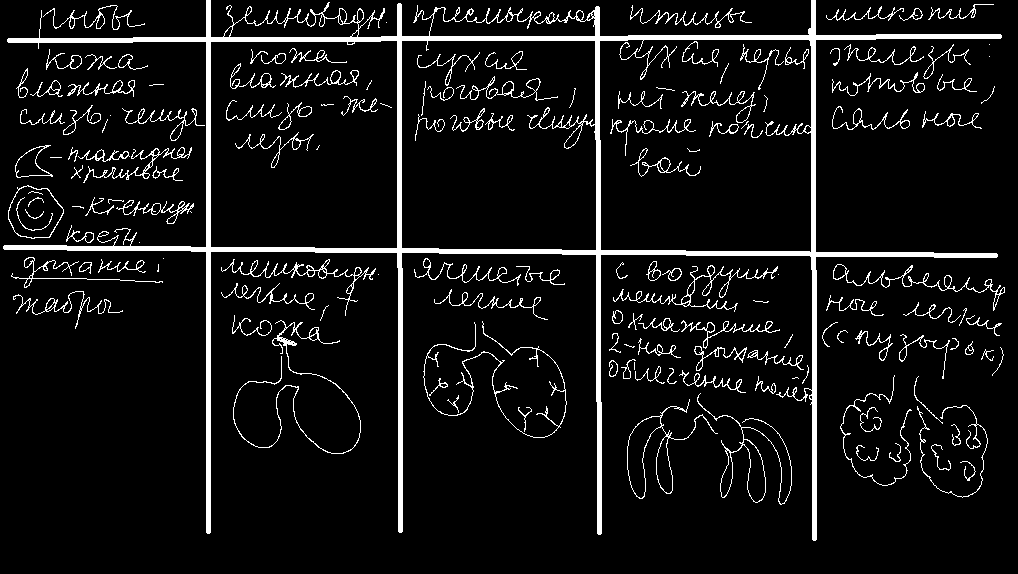 рыбы
земноводн.
пресмыкающ
птицы
млекопит
кожа
влажная –
слизь, чешуя
– плакоидная
хрящевые
– ктеноидн.
костн.
кожа
влажная,
слизь – же-
лезы.
сухая
роговая,
роговые чешуи
сухая, перья
нет желез,
кроме копчико
вой
железы:
потовые,
сальные
дыхание:
жабры
мешковидн.
легкие, +
кожа
ячеистые
легкие
с воздушн
мешками –
охлаждение,
2-ное дыхание,
облегчение полёта
альвеоляр
ные легкие
(с пузырьк)